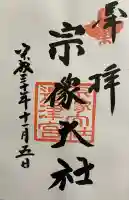 奉拝
宗像大社
平成三十年十一月五日